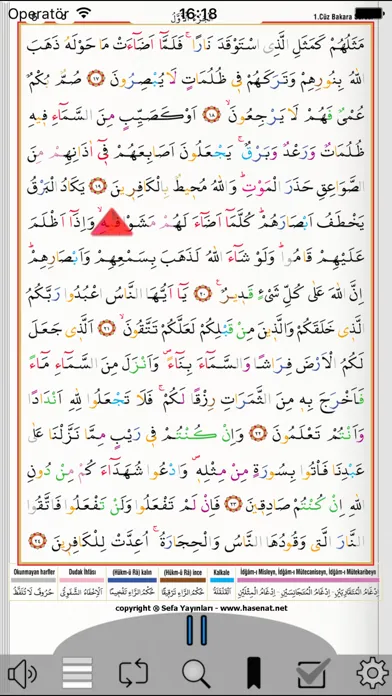 Operatör 16:18 1.Cüz Bakara
مَثَلُهُمْ كَمَثَلِ الَّذِى اسْتَوْقَدَ نَارًاۚ فَلَمَّٓا اَضَٓاءَتْ مَا حَوْلَهُ ذَهَبَ
اللّٰهُ بِنُورِهِمْ وَتَرَكَهُمْ فٖى ظُلُمَاتٍ لَا يُبْصِرُونَ ﴿١٧﴾ صُمٌّ بُكْمٌ
عُمْىٌ فَهُمْ لَا يَرْجِعُونَۙ ﴿١٨﴾ اَوْ كَصَيِّبٍ مِنَ السَّمَٓاءِ فٖيهِ
ظُلُمَاتٌ وَرَعْدٌ وَبَرْقٌۚ يَجْعَلُونَ اَصَابِعَهُمْ فٖٓى اٰذَانِهِمْ مِنَ
الصَّوَاعِقِ حَذَرَ الْمَوْتِؕ وَاللّٰهُ مُحٖيطٌ بِالْكَافِرٖينَ ﴿١٩﴾ يَكَادُ الْبَرْقُ
يَخْطَفُ اَبْصَارَهُمْؕ كُلَّمَٓا اَضَٓاءَ لَهُمْ مَشَوْا فٖيهِۙ وَاِذَٓا اَظْلَمَ
عَلَيْهِمْ قَامُواؕ وَلَوْ شَٓاءَ اللّٰهُ لَذَهَبَ بِسَمْعِهِمْ وَاَبْصَارِهِمْؕ
اِنَّ اللّٰهَ عَلٰى كُلِّ شَىْءٍ قَدٖيرٌ ﴿٢٠﴾ يَٓا اَيُّهَا النَّاسُ اعْبُدُوا رَبَّكُمُ
الَّذٖى خَلَقَكُمْ وَالَّذٖينَ مِنْ قَبْلِكُمْ لَعَلَّكُمْ تَتَّقُونَۙ ﴿٢١﴾ اَلَّذٖى جَعَلَ
لَكُمُ الْاَرْضَ فِرَاشًا وَالسَّمَٓاءَ بِنَٓاءً وَاَنْزَلَ مِنَ السَّمَٓاءِ مَٓاءً
فَاَخْرَجَ بِهٖ مِنَ الثَّمَرَاتِ رِزْقًا لَكُمْۚ فَلَا تَجْعَلُوا لِلّٰهِ اَنْدَادًا
وَاَنْتُمْ تَعْلَمُونَ ﴿٢٢﴾ وَاِنْ كُنْتُمْ فٖى رَيْبٍ مِمَّا نَزَّلْنَا عَلٰى
عَبْدِنَا فَأْتُوا بِسُورَةٍ مِنْ مِثْلِهٖ وَادْعُوا شُهَدَٓاءَكُمْ مِنْ دُونِ
اللّٰهِ اِنْ كُنْتُمْ صَادِقٖينَ ﴿٢٣﴾ فَاِنْ لَمْ تَفْعَلُوا وَلَنْ تَفْعَلُوا فَاتَّقُوا
النَّارَ الَّتٖى وَقُودُهَا النَّاسُ وَالْحِجَارَةُۚ اُعِدَّتْ لِلْكَافِرٖينَ ﴿٢٤﴾
Okunmayan harfler Dudak İhfâsı (Hükm-ü Râ) kalın (Hükm-ü Râ) ince Kalkale İdğâm-ı Misleyn, İdğâm-ı Mütecaniseyn, İdğâm-ı Mütekaribeyn
copyright @ Sefa Yayınları - www.hasenat.net